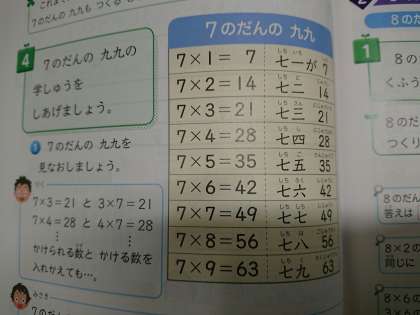 7のだんの 九九も つくる
4
7のだんの 九九の
学しゅうを
しあげましょう。
1 7のだんの 九九を
見なおしましょう。
7×3=21 と 3×7=21
7×4=28 と 4×7=28
かけられる数と かける数を
入れかえても…。
みつき
7のだんの 九九
7×1= 7 七一が 7
7×2=14 七二 14
7×3=21 七三 21
7×4=28 七四 28
7×5=35 七五 35
7×6=42 七六 42
7×7=49 七七 49
7×8=56 七八 56
7×9=63 七九 63
8のだ
1
8の
くふう
8のだ
つくり
8のだん
答えは
8×2の
同じに
8×6
8×3